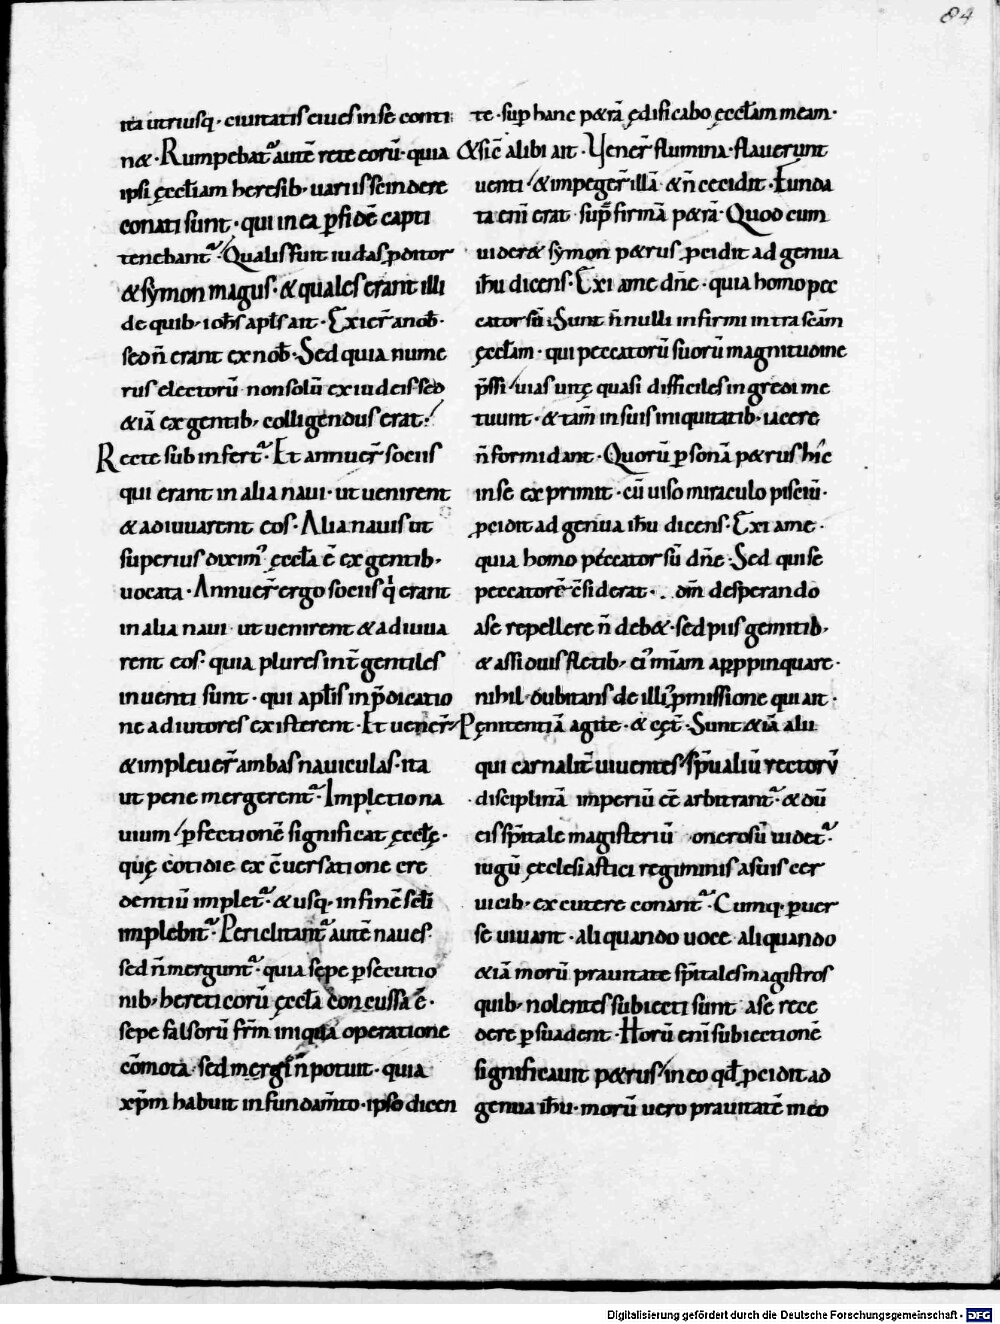 84
ita utriusq· ciuitatis ciues in se conti
n&· Rumpebat᷑ autē rete eorū· quia
ipsi ęccl̄iam heresib; uariis scindere
conati sunt· qui in ea ꝑfidē capti
tenebant᷑· Qualis fuit iudas ꝓditor
& symon magus· & quales erant illi
de quib; ioh̄s apl̄s ait· Exier̄ a nob̄·
sed n̄ erant ex nob̄· Sed quia nume
rus electorū non solū ex iudeis· sed
& iā ex gentib; colligendus erat·
Recte subinfert᷑· Et annuer̄ sociis
qui erant in alia naui· ut uenirent
& adiuuarent eos· Alia nauis ut
superius diximꝰ ęccl̄a ē ex gentib;
uocata· Annuer̄ ergo sociis qͥ erant
in alia naui ut uenirent & adiuua
rent eos· quia plures int̄ gentiles
inuenti sunt· qui apl̄is in p̄dicatio
ne adiutores existerent· Et uener̄
& impleuer̄ ambas nauiculas· ita
ut pene mergerent᷑· Impletio na
uium ꝑfectionē significat ęccl̄ę·
quę cotidie ex cōuersatione cre
dentiū implet᷑· & usq; in finē scl̄i
implebit᷑· Periclitant᷑ autē naues·
sed n̄ mergunt᷑· quia sepe ꝑsecutio
nib; hereticorū ęccl̄a concussa ē·
sepe falsorū fr̄m iniqua operatione
cōmota· sed mergi n̄ potuit· quia
xp̄m habuit in fundam̄to· ipso dicen
te· suꝑ hanc p&rā ędificabo ęccl̄am meam·
& sic̄ alibi ait· Uener̄ flumina· flauerunt
uenti & impeger̄ illā & n̄ cecidit· Funda
ta eni erat sup̄ firmā p&rā· Quod cum
uider& symon p&rus ꝓcidit ad genua
ih̄u dicens· Exi a me dn̄e· quia homo pec
cator sū· Sunt n̄nulli infirmi intra scām
ęccl̄am· qui peccatorū suorū magnitudine
p̄ssi uias uitę quasi difficiles ingredi me
tuunt· & tam̄ in suis iniquitatib; iacere
n̄ formidant· Quorū ꝑsonā p&rus hic
in se exprimit· cū uiso miraculo pisciū·
ꝓcidit ad genua ih̄u dicens· Exi a me·
quia homo peccator sū dn̄e· Sed qui se
peccatorē cōsiderat· dm̄ desperando
a se repellere n̄ deb&· sed piis gemitib;
& assiduis fletib; eiꝰ miam appropinquare·
nihil dubitans de illiꝰ ꝓmissione qui ait·
Pęnitentiā agite· & cęt̄· Sunt & iā alii
qui carnalit̄ uiuentes sp̄ualiū rectorū
disciplinā imperiū eē arbitrant᷑· & dū
eis sp̄itale magisteriū onerosū uidet᷑
iugū ęcclesiastici regiminis a suis cer
uicib; excutere conant᷑· Cumq; ꝑuer
se uiuant· aliquando uoce aliquando
& iā morū prauitate sp̄itales magistros
quib; nolentes subiecti sunt a se rece
dere ꝑsuadent· Horū eni subiectionē
significauit p&rus in eo qd̄ ꝓcidit ad
genua ih̄u· morū uero prauitatē in eo
Digitalisierung gefördert durch die Deutsche Forschungsgemeinschaft - DFG